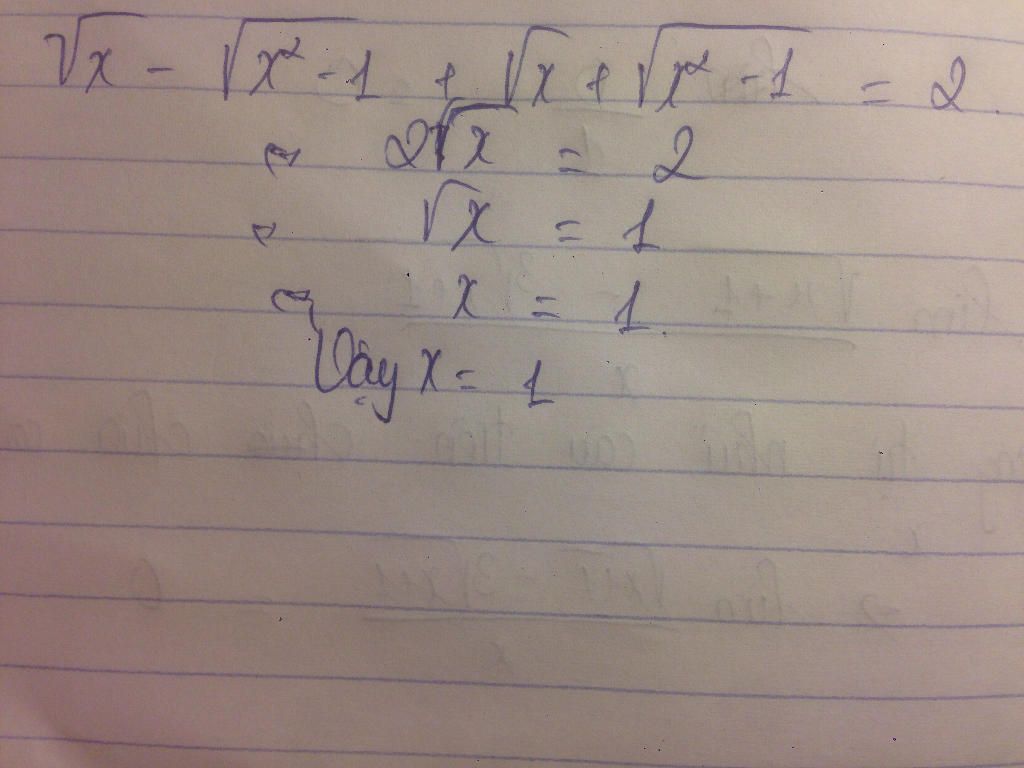 √x - √x² - 1 + √x + √x² - 1 = 2
⇔ 2√x = 2
⇔ √x = 1
⇔ x = 1
Vậy x = 1